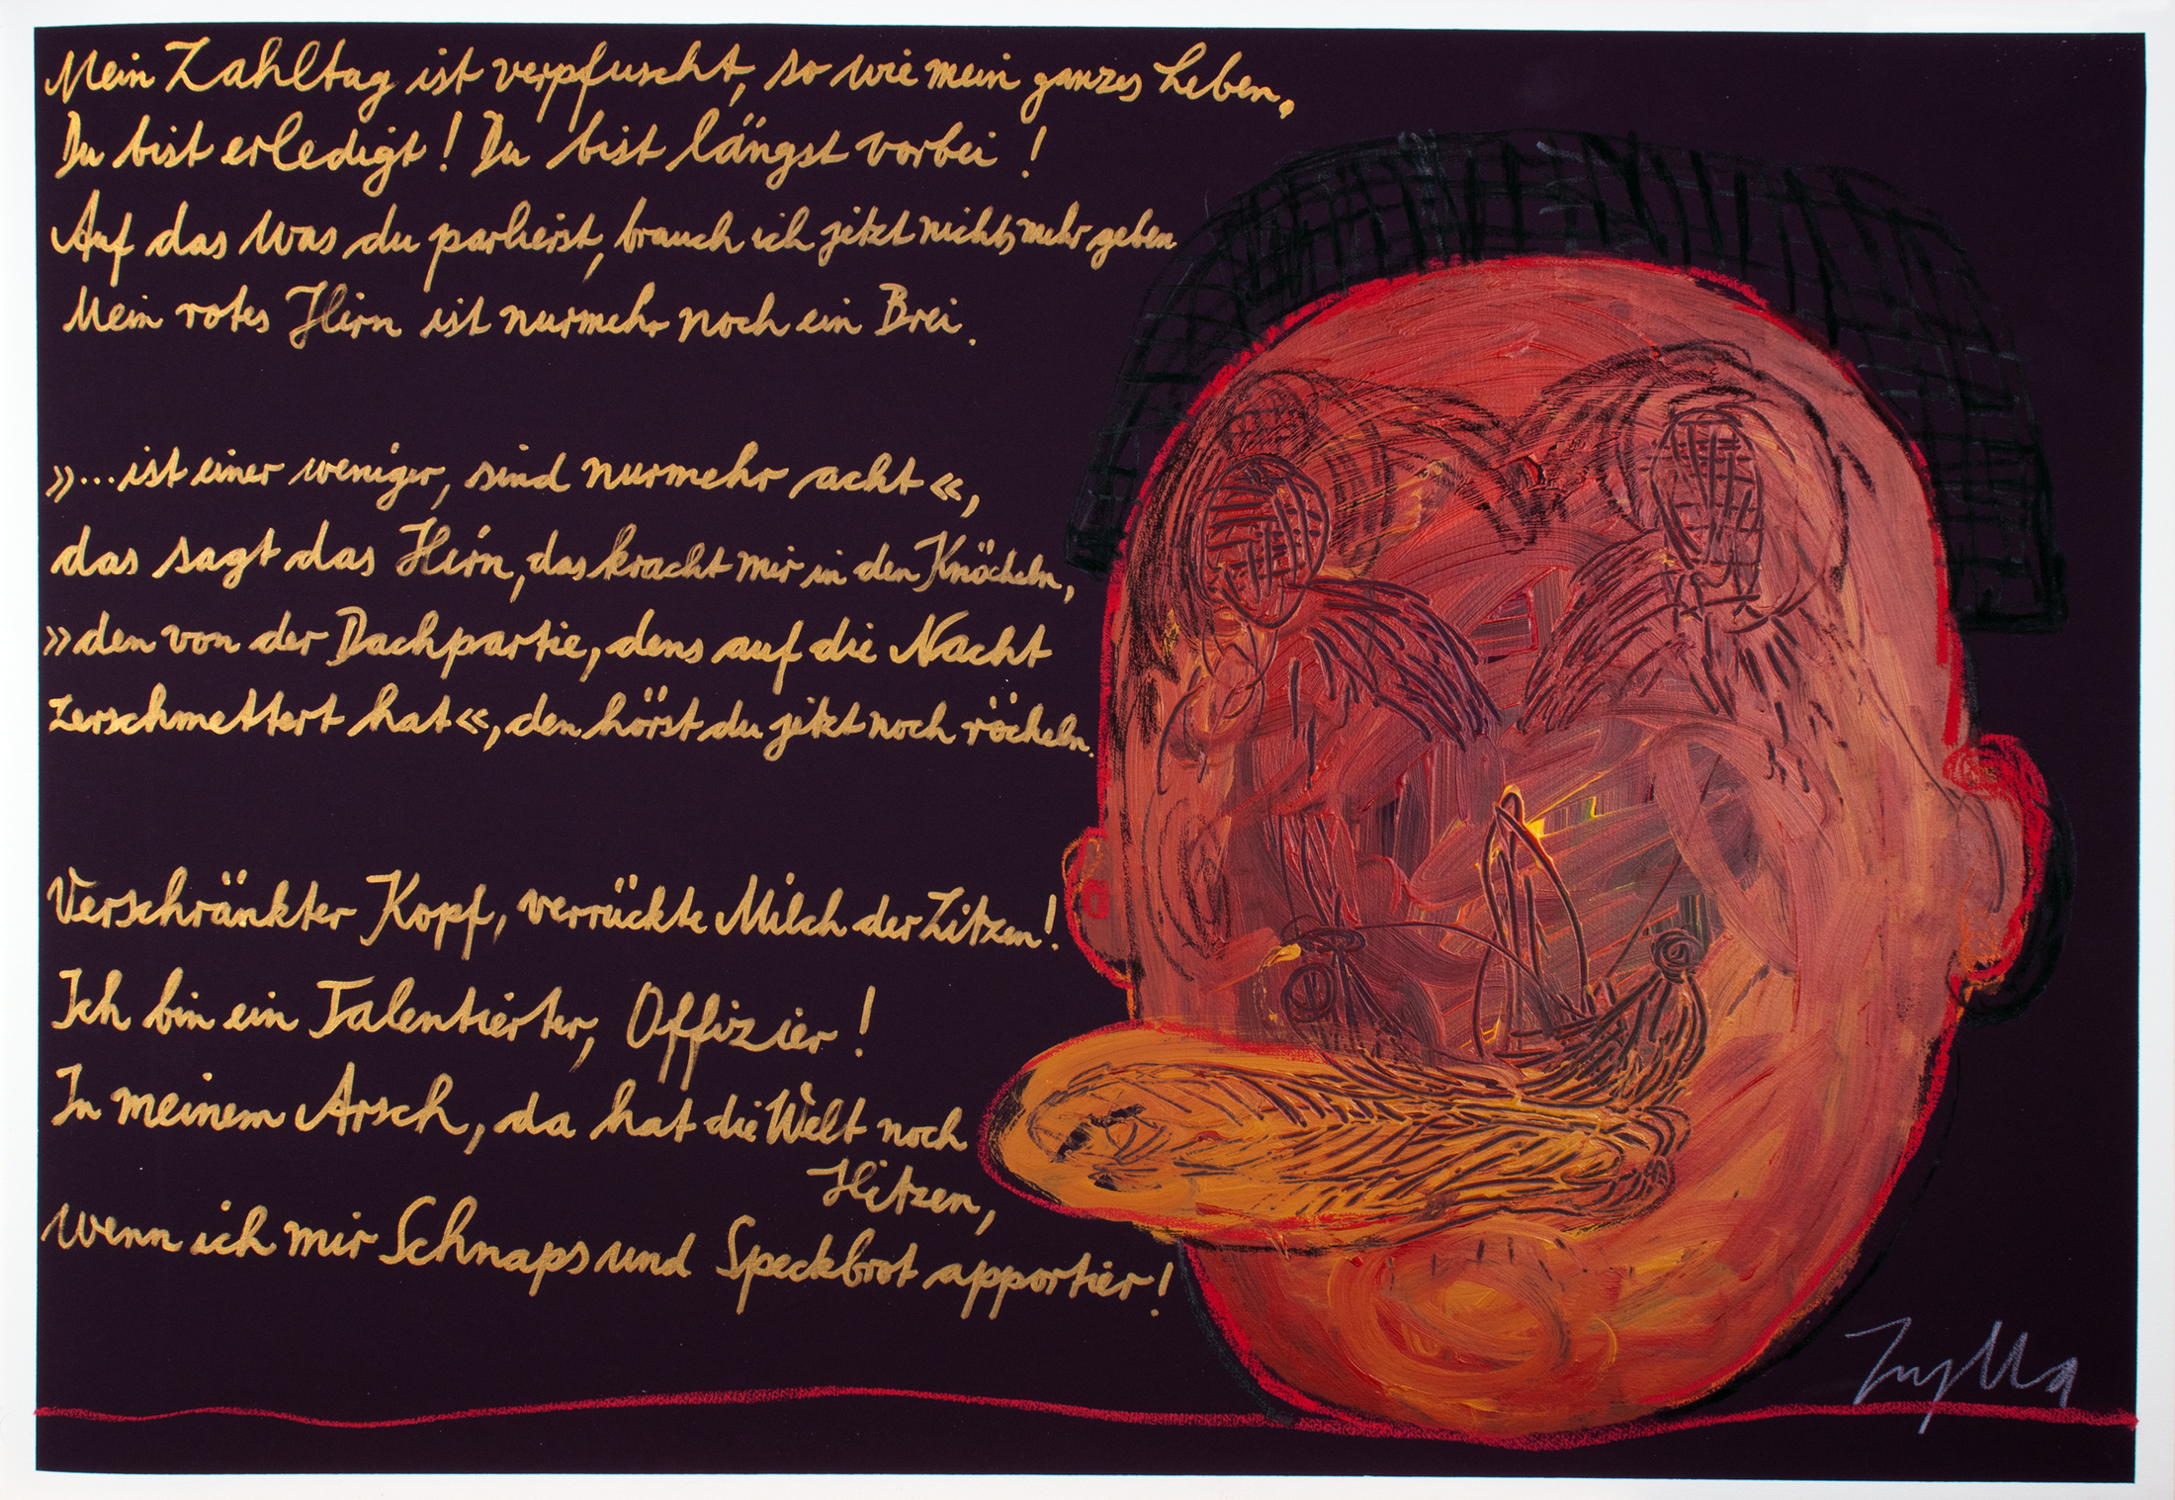 Mein Zahltag ist verpfuscht, so wie mein ganzes Leben,
Du bist erledigt! Du bist längst vorbei!
Auf das was du parlierst, brauch ich jetzt nichts mehr geben
Mein rotes Hirn ist nurmehr noch ein Brei.
»...ist einer weniger, sind nurmehr acht«,
das sagt das Hirn, das kracht mir in den Knöcheln,
»den von der Dachpartie, dens auf die Nacht
zerschmettert hat«, den hörst du jetzt noch röcheln.
Verschränkter Kopf, verrückte Milch der Zitzen!
Ich bin ein Talentierter, Offizier!
In meinem Arsch, da hat die Welt noch
Hitzen,
wenn ich mir Schnaps und Speckbrot apportier!